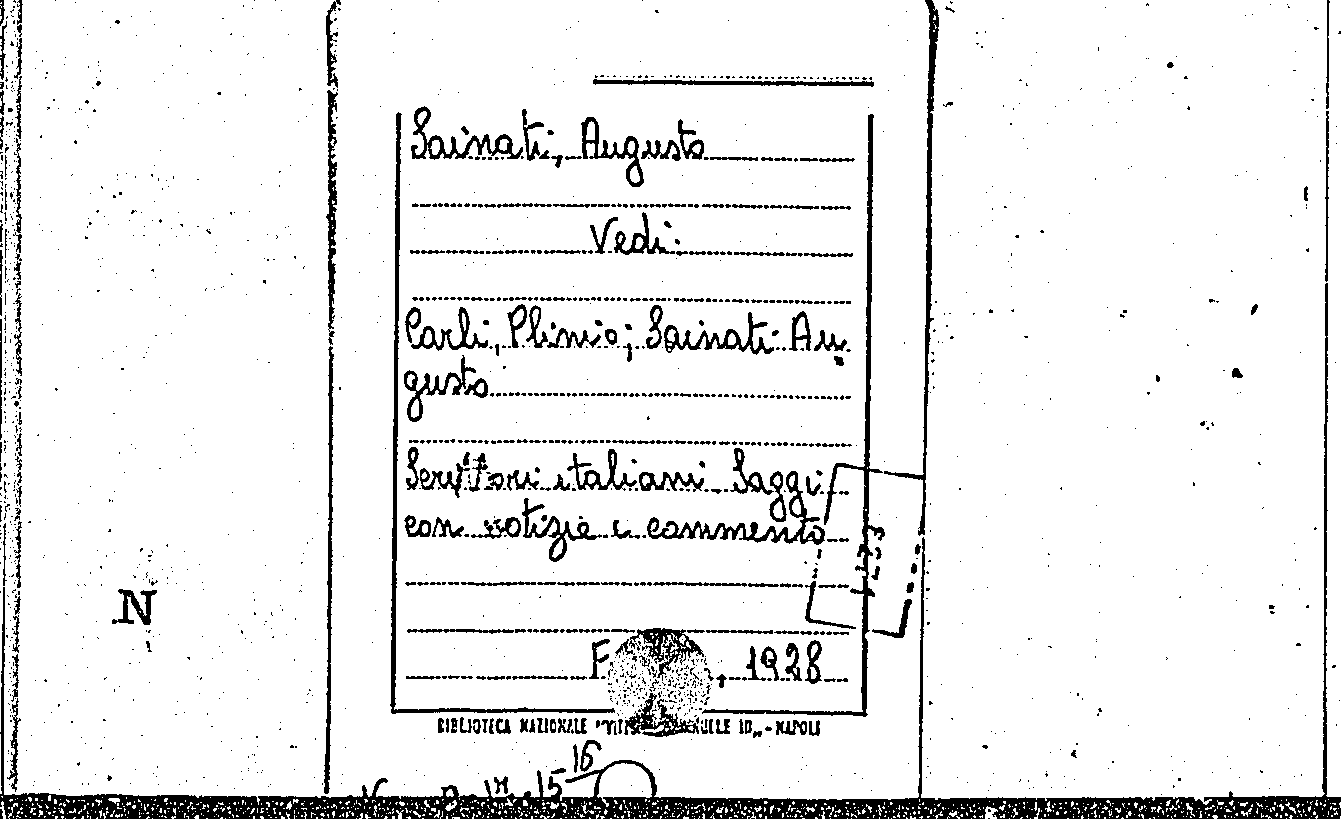 Sainati, Augusto
Vedi:
Carli, Plinio; Sainati Au-
gusto
Scrittori italiani Saggi
con notizie e commento
N
F , 1928
BIBLIOTECA NAZIONALE - NAPOLI
15 16